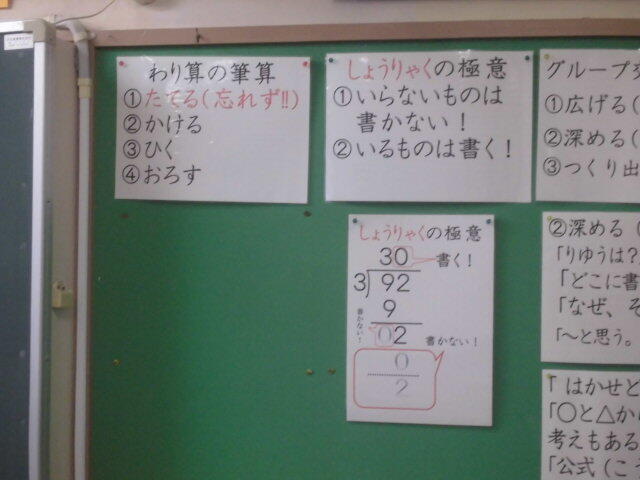 わり算の筆算
①たてる(忘れず!!)
②かける
③ひく
④おろす
しょうりゃくの極意
①いらないものは
書かない！
②いるものは書く！
グループ
①広げる(
②深める(
③つくり出
しょうりゃくの極意
30
書く！
3)92
9
書かない！
02
書かない！
0
2
②深める（
「りゆうは？
「どこに書
「なぜ、そ
「～と思う。
「はかせど
「○と△か
考えもある
「公式（こ